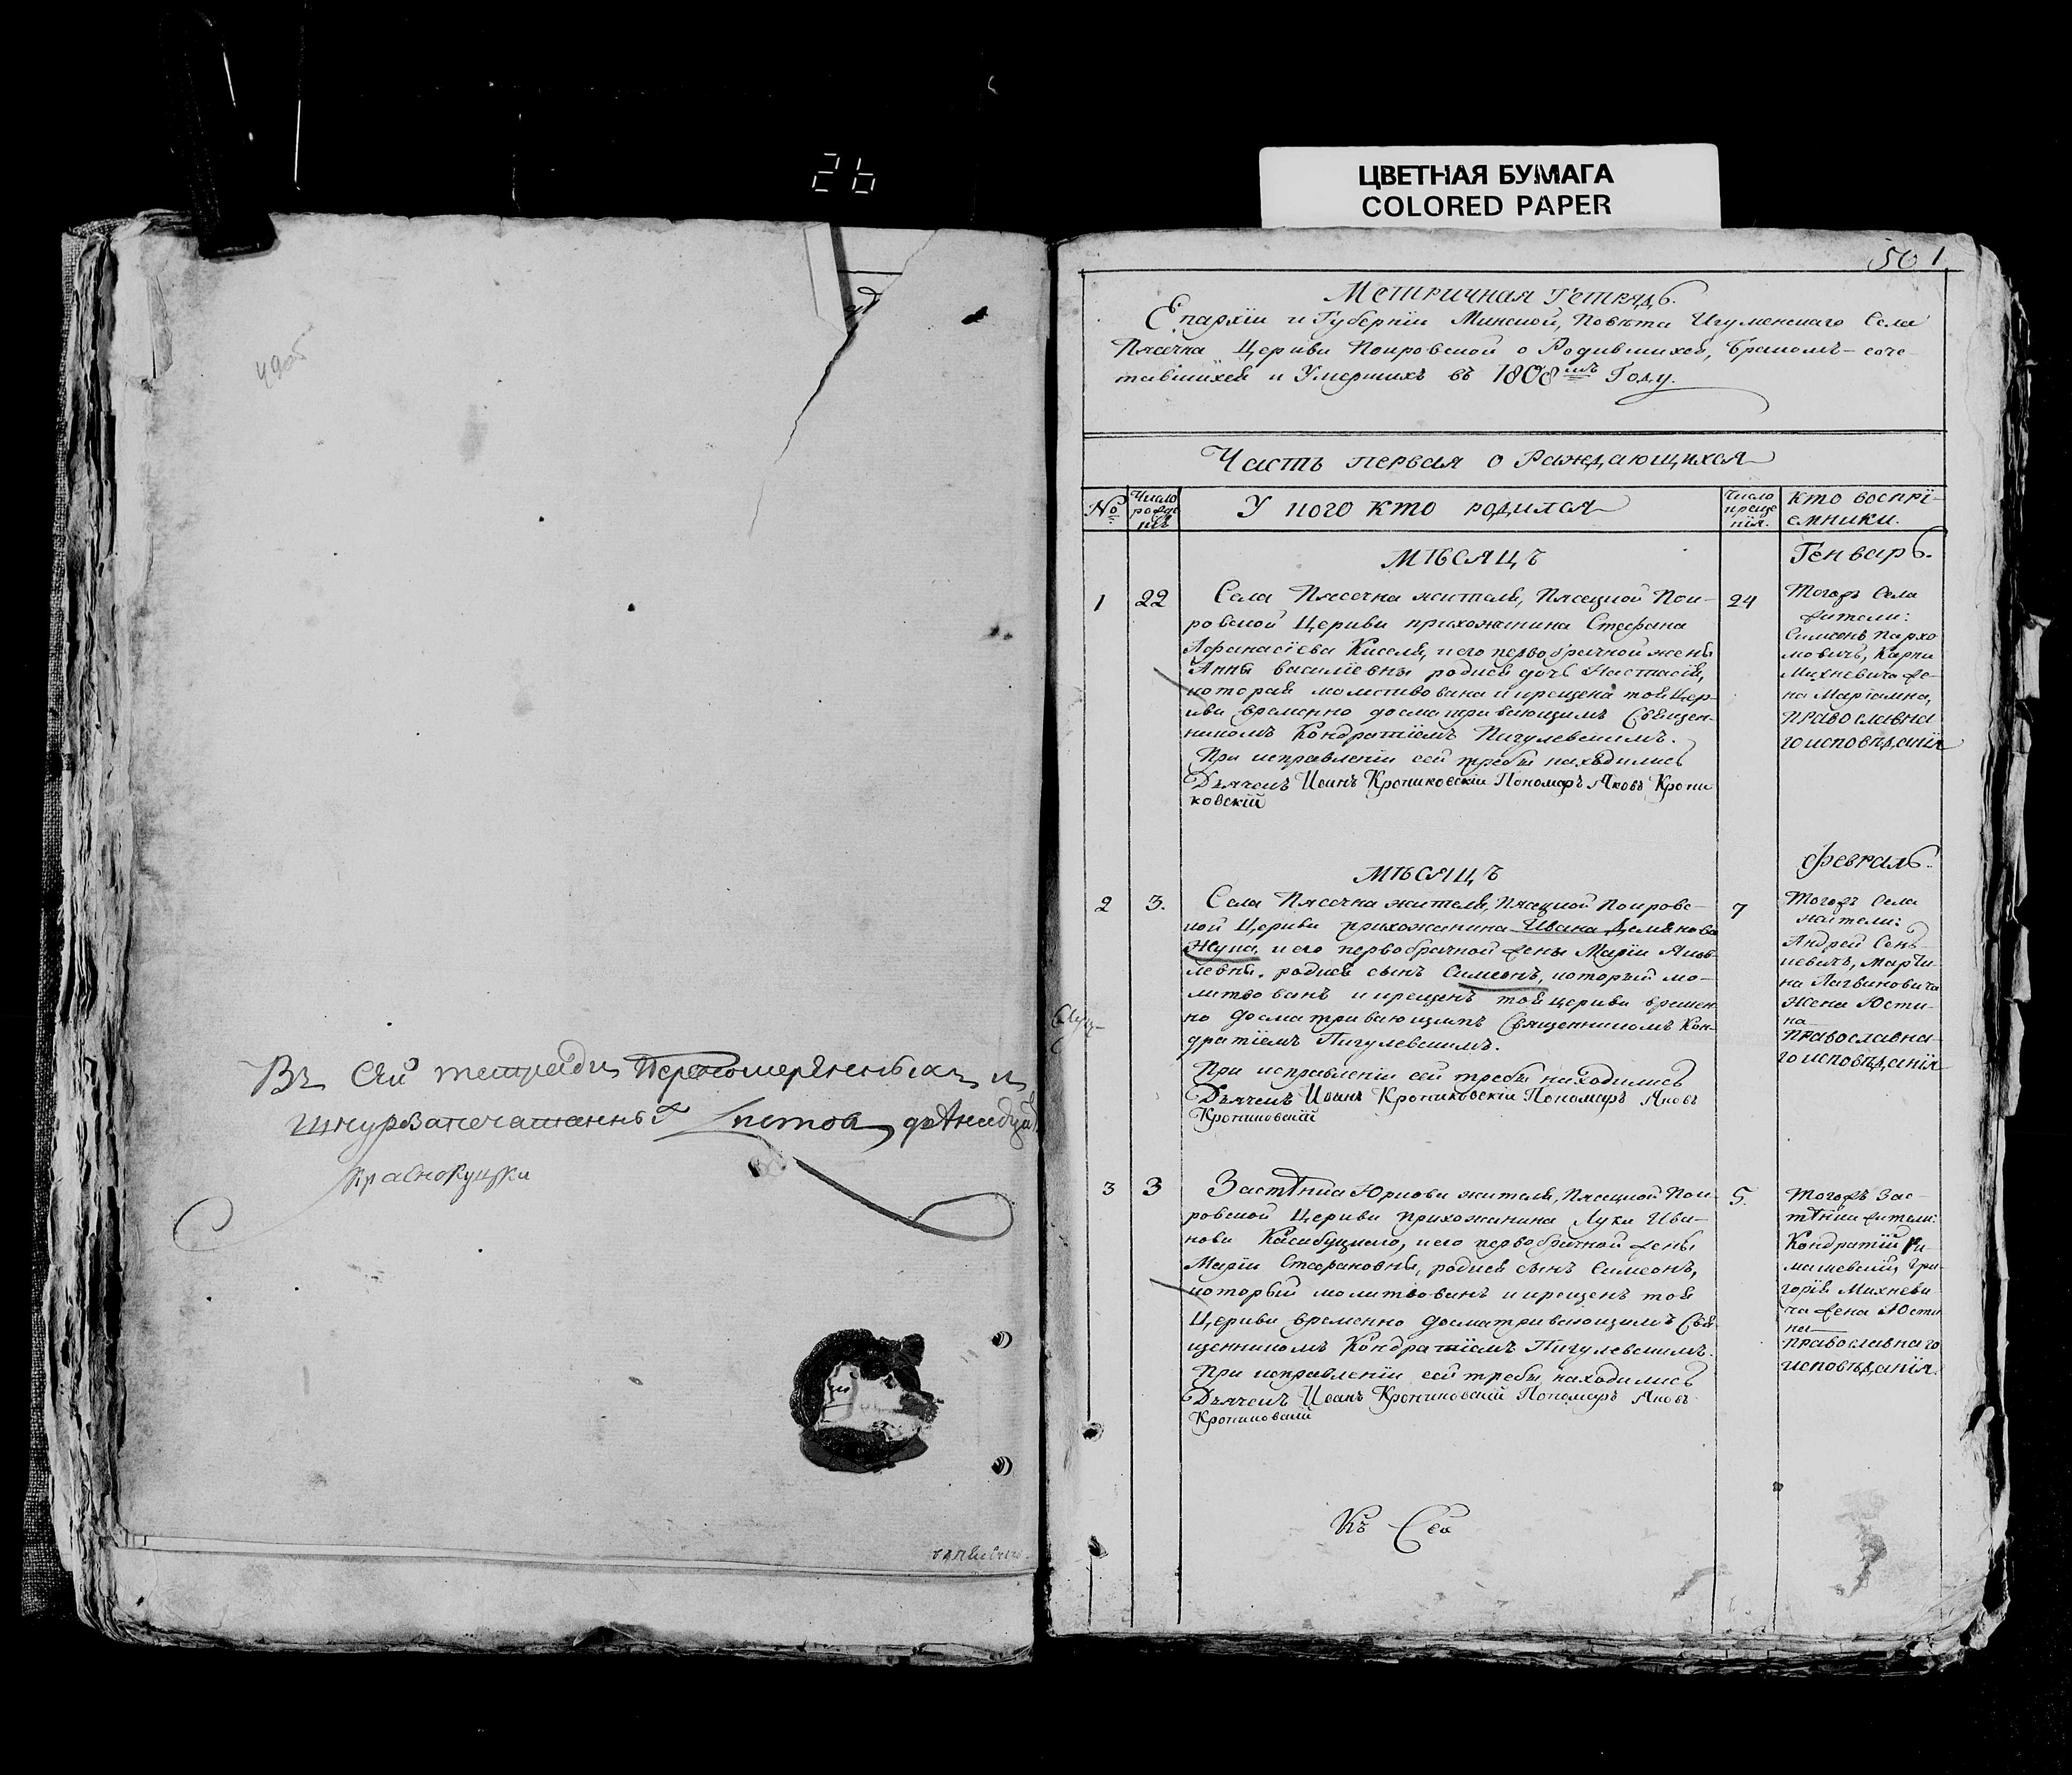 26
ЦВЕТНАЯ БУМАГА
COLORED PAPER
Въ сей тетради перенумеренныхъ и
шнурозапечатанныхъ листов
501
Метричная Тетрадь.
Епархїи и Губернїи Минской, Повѣта Игуменскаго Села
Пясечна Церкви Покровской о Родившихся, Бракомъ-соче-
тавшихся и Умершихъ въ 1808мъ Году.
Часть первая о Раждающихся
№
Число рожде нїѧ
У кого кто родился
Число креще нїя.
кто воспрї-
емники.
мѣсяцъ
Генварь.
1
22
Села Пясечна жителя, Пясецкой Пок-
ровской Церкви прихожанина Стефана
Афанасїева Киселя, и его первобрачной жены
Анны василїевны родися дочь Настасїя,
которая молитвована и крещена той Цер-
кви временно досматривающимъ Священ-
никомъ Кондратїемъ Пигулевскимъ.
При исправленїи сей требы находились
Дьячекъ Иванъ Крониковскїи Пономаръ Яковъ Крони
ковскїй
24
Тогожъ Села
жители:
Симеонъ Пархо
мовичъ, Карпа
Михневича же-
на Марїамна,
православна
го исповѣданїя
мѣсяцъ
февраль.
2
3.
Села Пясечна жителя, Пясецкой Покровс-
кой Церкви прихожанина Ивана Демянова
Жука, и его первобрачной жены Марїи Яков-
левны, родися сынъ Симеонъ, который мо-
литвованъ и крещенъ той церкви времен
но досматривающимъ Священникомъ Кон-
дратїемъ Пигулевскимъ.
При исправленїи сей требы находились
Дьячекъ Иванъ Крониковскїи Пономаръ Яковъ
Крониковскїй
7
Тогожъ Села
жители:
Андрей Сень-
кевичъ, Марти-
на Логвиновича
жена Юсти-
на
православна-
го исповѣданїя
3
3
Застѣнка Юркова жителя, Пясецкой Пок-
ровской Церкви прихожанина Луки Ива-
нова Касабуцкого, и его первобрачной жены
Марїи Стефановны, родися сынъ Симеонъ,
который молитвованъ и крещенъ той
Церкви временно досматривающимъ Свя-
щенникомъ Кондратїемъ Пигулевскимъ.
При исправленїи сей требы находились
Дьячекъ Иванъ Крониковскїй Пономаръ Яковъ
Крониковскїй
5.
Тогожъ Зас-
тѣнка жители:
Кондратїй Ри-
машевскїй, Гри-
горїя Михневи-
ча жена Юсти
на
православнаго
исповѣданїя.
Къ Сей